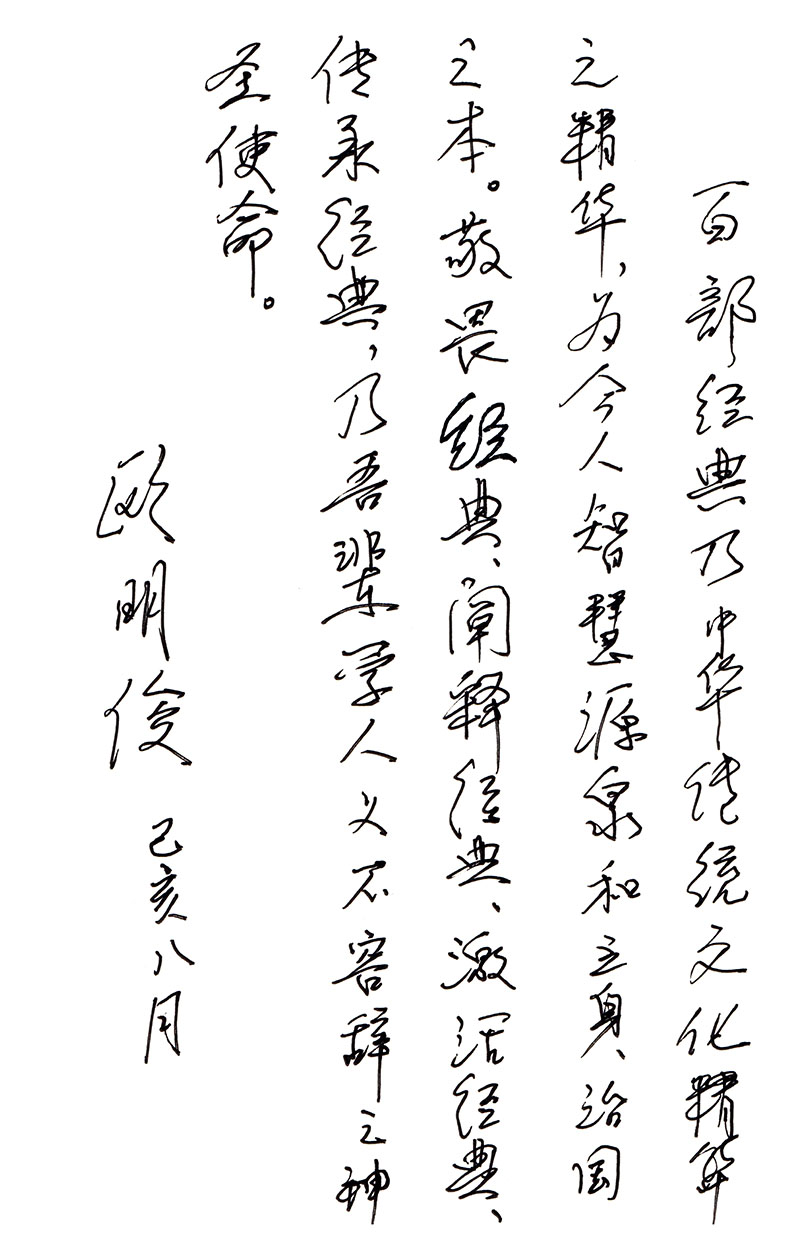 百部经典乃中华传统文化精华
之精华，为今人智慧源泉和立身、治国
之本。敬畏经典、阐释经典、激活经典、
传承经典，乃吾辈学人义不容辞之神
圣使命。
欧明俊 己亥八月